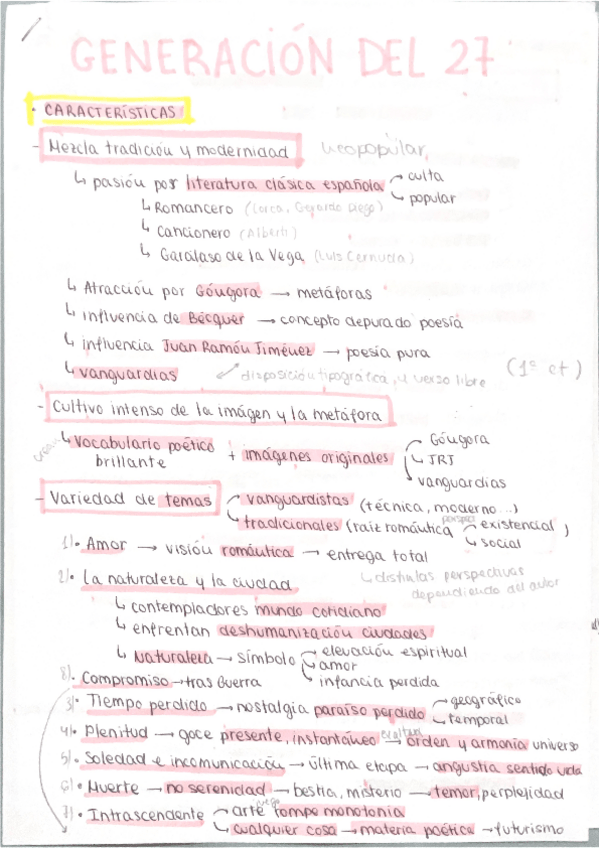 GENERACIÓN DEL 27
· CARACTERÍSTICAS
- Mezcla tradición y modernidad neopopular
↳ pasión por literatura clásica española culta
popular
↳ Romancero (Lorca, Gerardo Diego)
↳ Cancionero (Alberti)
↳ Garcilaso de la Vega (Luis Cernuda)
↳ Atracción por Góngora → metáforas
↳ influencia de Bécquer → concepto depurado poesía
↳ influencia Juan Ramón Jiménez → poesía pura
↳ vanguardias disposición tipográfica, y verso libre (1ª et)
- Cultivo intenso de la imágen y la metáfora
↳ vocabulario poético brillante + imágenes originales Góngora
JRJ
vanguardias
- Variedad de temas vanguardistas (técnica, moderno...)
tradicionales (raíz romántica existencial)
social
1). Amor → visión romántica → entrega total
2). La naturaleza y la ciudad ↳ distintas perspectivas
dependiendo del autor
↳ contempladores mundo cotidiano
↳ enfrentan deshumanización ciudades
↳ Naturaleza → símbolo elevación espiritual
amor
infancia perdida
8). Compromiso → tras Guerra
3). Tiempo perdido → nostalgia paraíso perdido geográfico
temporal
4). Plenitud → goce presente, instantáneo → orden y armonía universo
5). Soledad e incomunicación → última etapa → angustia sentido vida
6). Muerte → no serenidad → bestia, misterio → temor, perplejidad
7). Intrascendente arte juego rompe monotonía
cualquier cosa → materia poética → futurismo